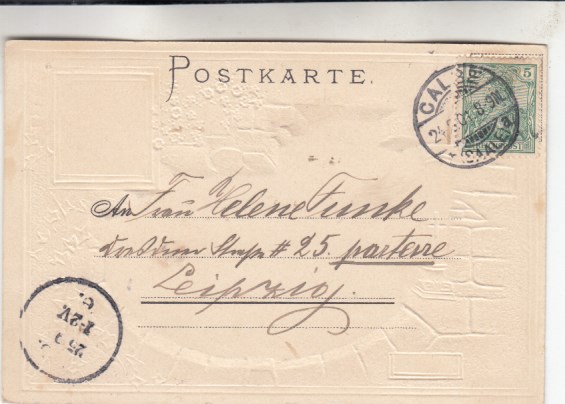 POSTKARTE.
5
CAL
(SAALE) a
An Frau Helene Funke
Dresdener Straße # 25. parterre
Leipzig.
25
1-2V.